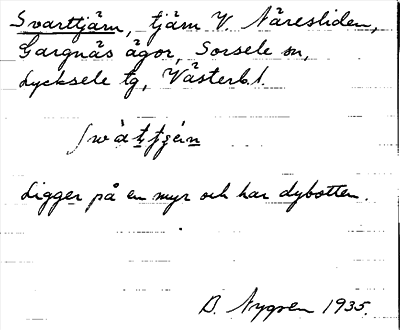 Svarttjärn, tjärn V. Näresliden,
Gargnäs ägor, Sorsele sn,
Lycksele tg, Västerb. l.
Ligger på en myr och har dybotten.
D. Nygren 1935.